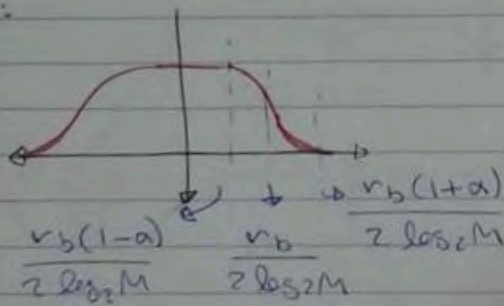 r_b(1-α) / 2 log_2 M
r_b / 2 log_2 M
r_b(1+α) / 2 log_2 M